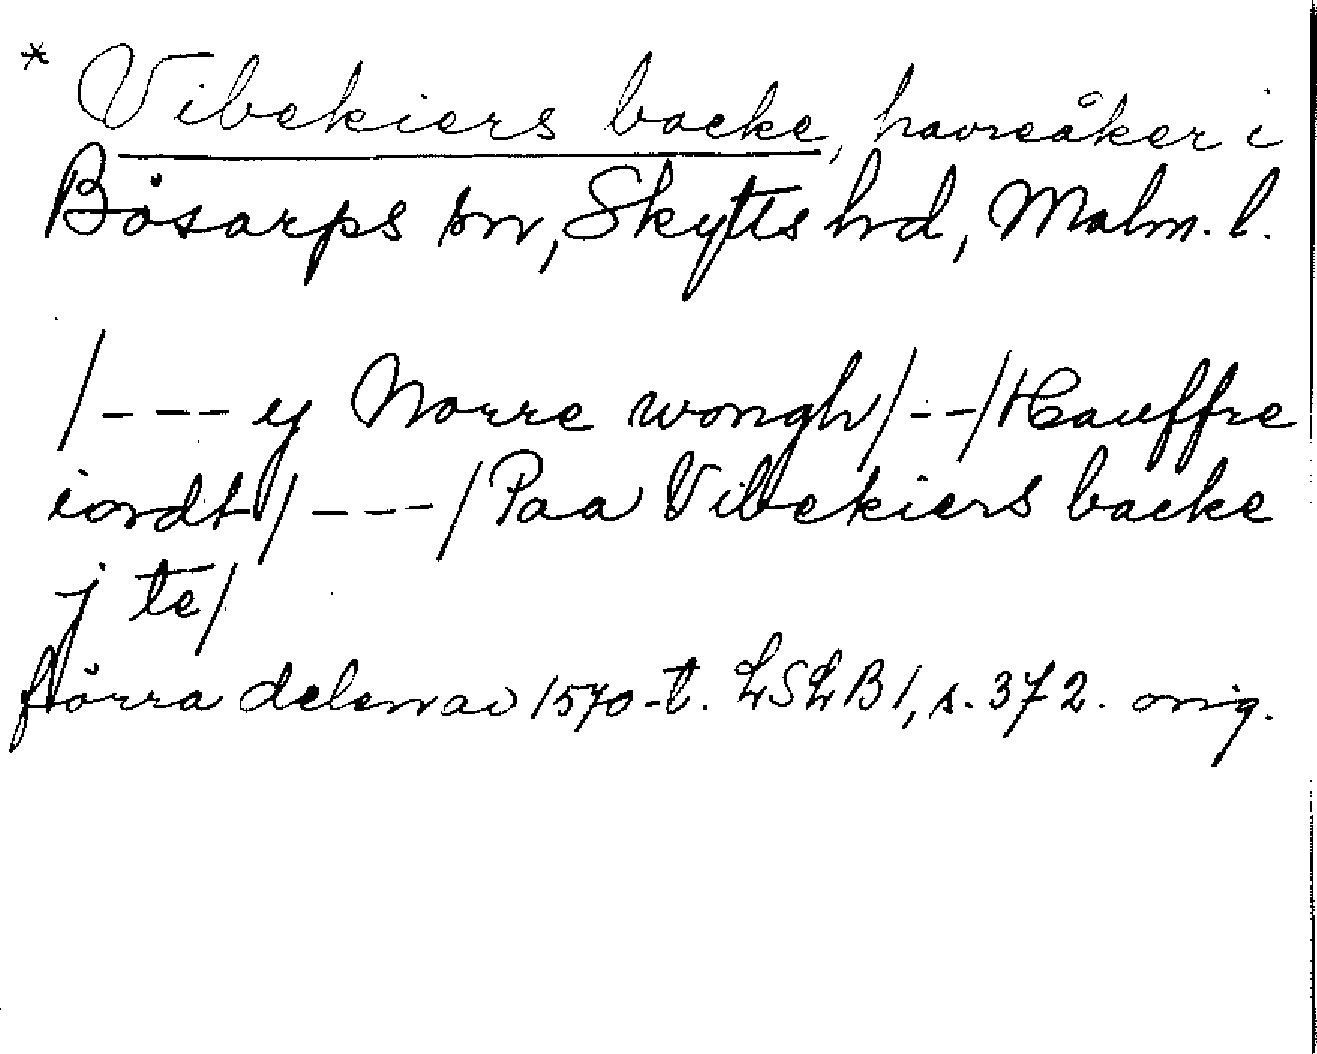 * Vibekiers backe, havreåker i
Bösarps sn, Skytts hd, Malm. l.
/---y Norre wongh/--/Hauffre
iordt/---/Paa Vibekiers backe
j te/
förra delen av 1570-t. LSLB1, s. 372. orig.